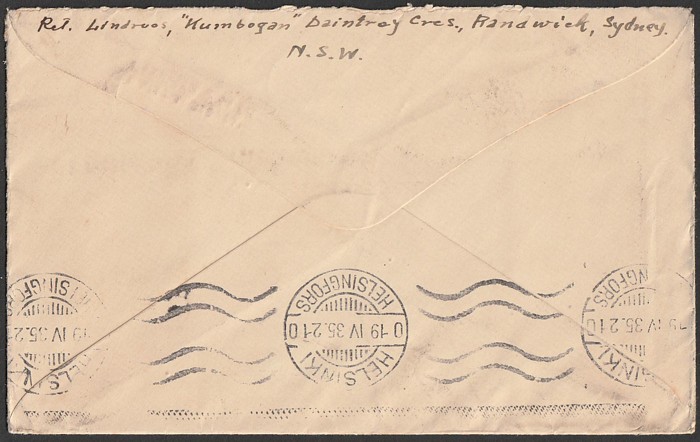 Ret. Lindroos, "Kumbogan" Daintrey Cres., Randwick, Sydney.
N.S.W.
HELSINGFORS
19 IV 35.21
HELSINKI
HELSINGFORS
0 19 IV 35.21 0
HELSINKI
HELSINGFORS
19 IV 35.21 0
HELSINKI